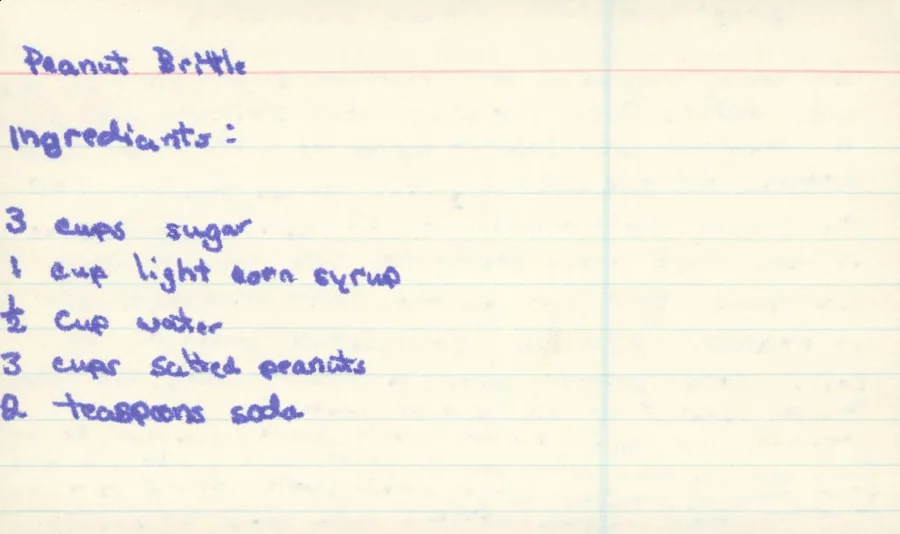 Peanut Brittle
Ingrediants:
3 cups sugar
1 cup light corn syrup
½ cup water
3 cups salted peanuts
2 teaspoons soda